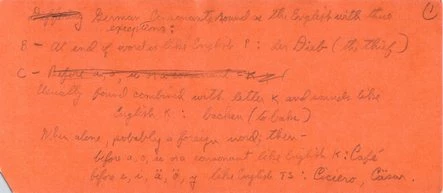 ①
German Consonants sound as the English with these
exceptions:
B - At end of word is like English P: der Dieb (the thief)
C - Before a, o, u or a consonant = K
Usually found combined with letter K and sounds like
English K: backen (to bake)
When alone, probably a foreign word; then -
before a, o, u or a consonant like English K: Café
before e, i, ä, ö, y like English TS: Cicero, Cäsar.